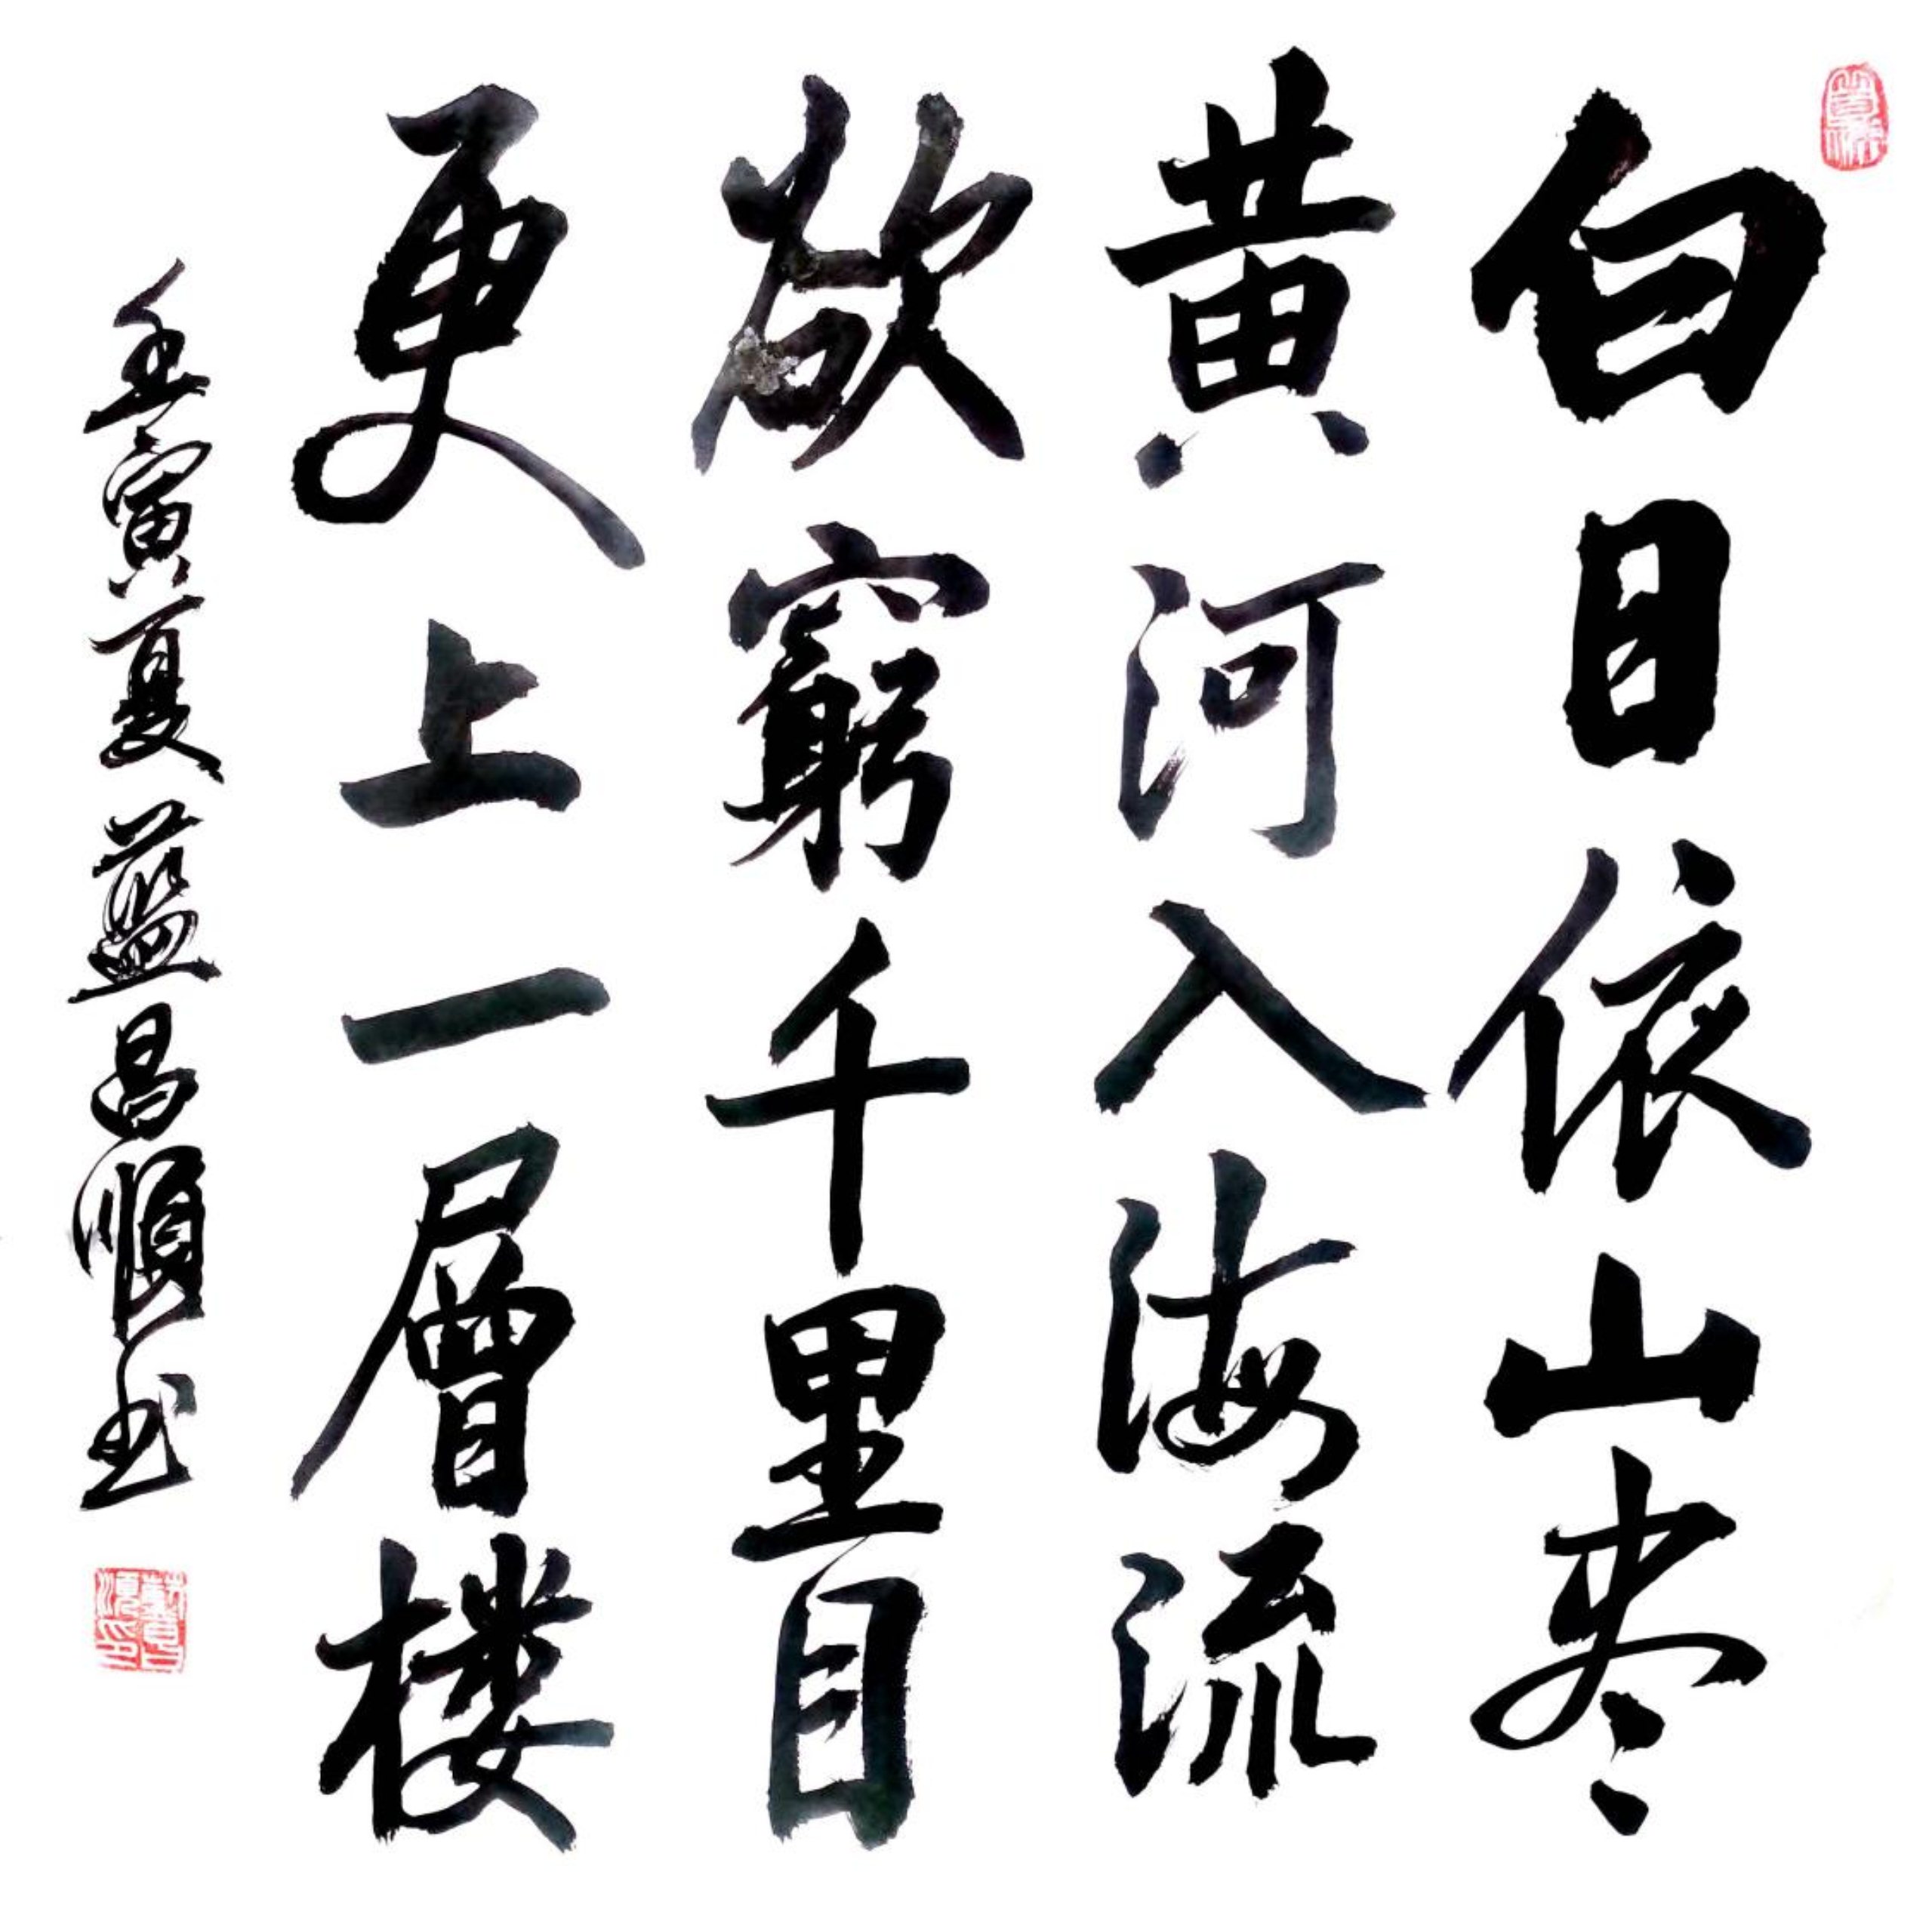 白日依山尽
黄河入海流
欲窮千里目
更上一層樓
壬寅夏藍昌順书